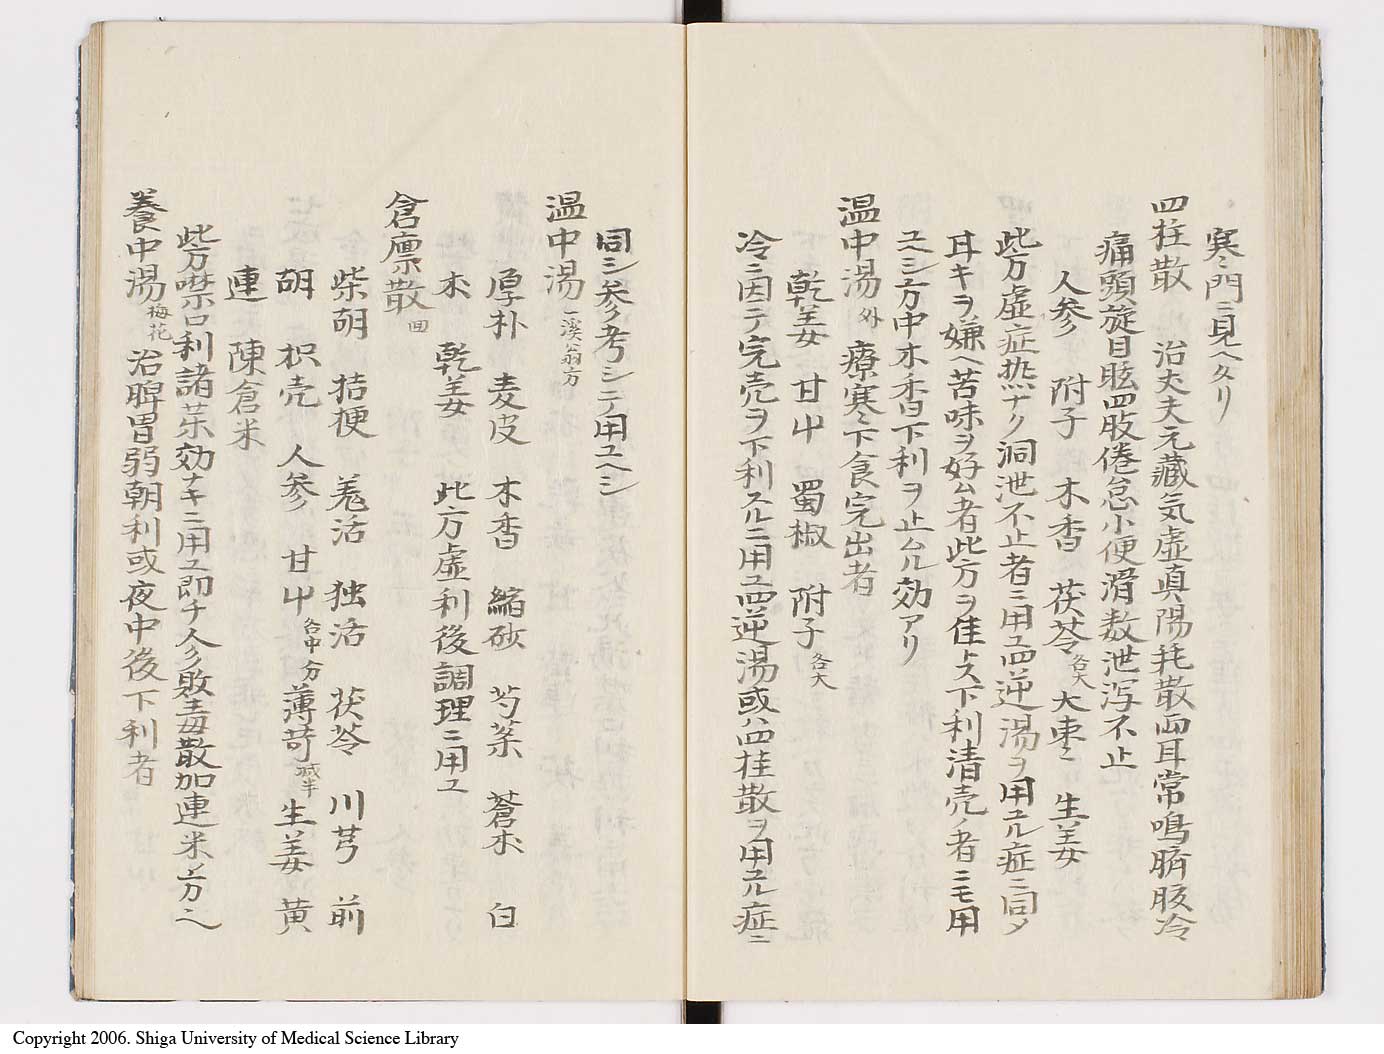 寒門ニ見ヘタリ
四柱散　治丈夫元藏気虚真陽耗散両耳常鳴臍腹冷
痛頭旋目眩四肢倦怠小便滑数泄泻不止
人参　附子　木香　茯苓各大　大枣　生姜
此方虚症热ナク洞泄不止者ニ用ユ四逆湯ヲ用ユル症ニ同メ
耳キヲ嫌ヘ苦味ヲ好ム者此方ヲ佳トス下利清壳ノ者ニモ用
ユヘシ方中木香下利ヲ止ムル効アリ
温中湯外　療寒下食完出者
乾姜　甘屮　蜀椒　附子各大
冷ニ因テ完壳ヲ下利スルニ用ユ四逆湯或ハ四柱散ヲ用ユル症ニ
同シ参考シテ用ユヘシ
温中湯一溪翁方
厚朴　麦皮　木香　縮砂　芍薬　蒼朮　白
朮　乾姜　此方虚利後調理ニ用ユ
倉廪散回
柴胡　桔梗　羗活　独活　茯苓　川芎　前
胡　枳壳　人参　甘屮各中分　薄荷减半　生姜　黄
連　陳倉米
此方噤口利諸薬効ナキニ用ユ即チ人参敗毒散加連米ノ方也
養中湯梅花　治脾胃弱朝利或夜中後下利者
Copyright 2006. Shiga University of Medical Science Library